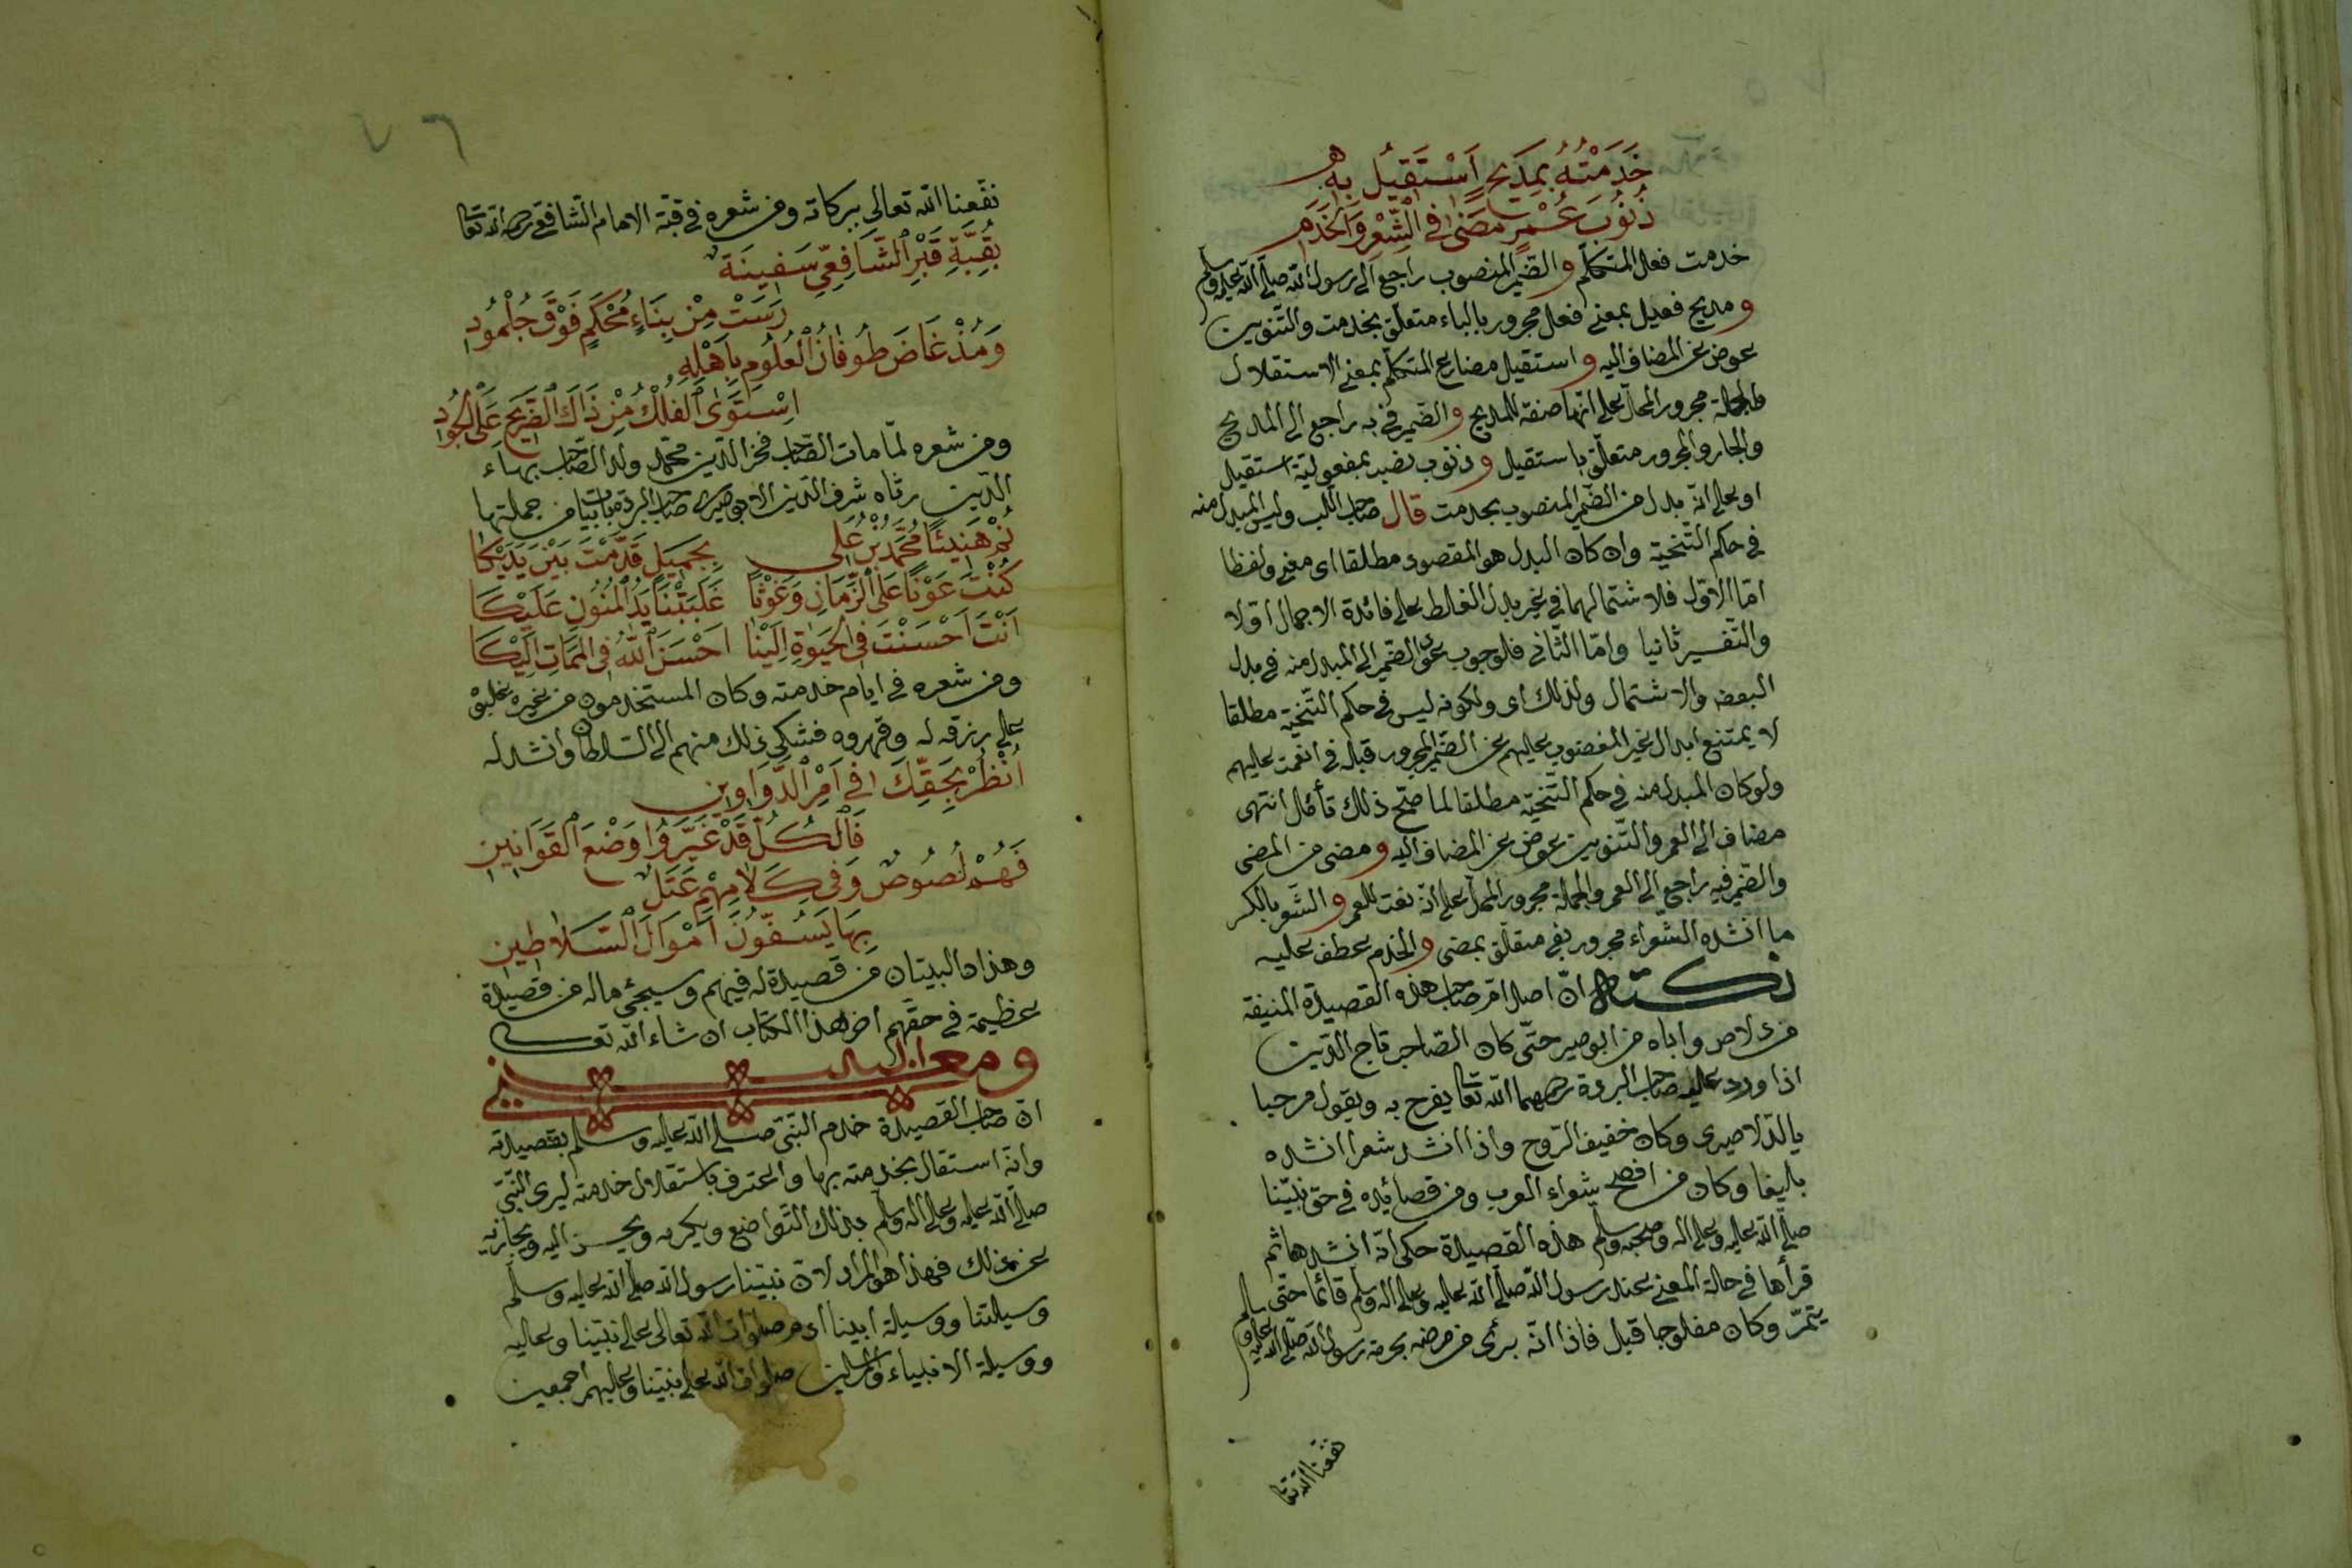 خَدَمْتُهُ بِمَدِيحٍ اَسْتَقِيلُ بِهِ
ذُنُوبَ عُمْرٍ مَضَىٰ فِي الشِّعْرِ وَالْخَدَمِ
خدمت فعل المتكلم والضمير المنصوب راجع الى رسول الله صلى الله عليه وسلم
ومديح فعيل بمعنى فعل مجرور بالباء متعلق بخدمت والتنوين
عوض عن المضاف اليه واستقيل مضارع المتكلم بمعنى الاستقلال
والجملة مجرور المحل على انها صفة للمديح والضمير في به راجع الى المديح
والجار والمجرور متعلق باستقيل وذنوب نصب بمفعولية استقيل
او على انه بدل من الضمير المنصوب بخدمت قال صاحب اللب وليس المبدل منه
في حكم التنحية وان كان البدل هو المقصود مطلقا اى معنى ولفظا
اما الاول فلاشتمالهما في غير بدل الغلط على فائدة الاجمال اولا
والتفسير ثانيا واما الثاني فلوجوب عود الضمير الى المبدل منه في بدل
البعض والاشتمال ولذلك اى ولكونه ليس في حكم التنحية مطلقا
لا يمتنع ابدال غير المغضوب عليهم عن الضمير المجرور قبله في انعمت عليهم
ولو كان المبدل منه في حكم التنحية مطلقا لما صح ذلك تأمل انتهى
مضاف الى العمر والتنوين عوض عن المضاف اليه ومضى من المضى
والضمير فيه راجع الى العمر والجملة مجرور المحل على انه نعت للعمر والشعر بالكسر
ما انشده الشعراء مجرور بفي متعلق بمضى والخدم عطف عليه
نكتة ان اصل امر صاحب هذه القصيدة المنيفة
من دلاص واباه من ابوصير حتى كان الصاحب تاج الدين
اذا ورد عليه صاحب البردة رحمهما الله تعا يفرح به ويقول مرحبا
يا الدلاصيرى وكان خفيف الروح واذا انشد شعرا انشده
بليغا وكان من افصح شعراء العرب ومن قصائده في حق نبينا
صلى الله عليه وعلى اله وصحبه وسلم هذه القصيدة حكى انه انشدها ثم
قرأها في حالة المعنى عند رسول الله صلى الله عليه وعلى اله وسلم قائما حتى
يتمر وكان مفلوجا قبل فاذا انه برئ من مرضه بحرمة رسول الله صلى الله عليه وسلم
نفعنا الله تعا
٧٦
نفعنا الله تعالى ببركاته ومن شعره في قبة الامام الشافعى رحمه الله تعا
بِقُبَّةِ قَبْرِ الشَّافِعِيِّ سَفِينَةٌ
رَسَتْ مِنْ بِنَاءٍ مُحْكَمٍ فَوْقَ جُلْمُودِ
وَمُذْ غَاضَ طُوفَانُ الْعُلُومِ بِاَهْلِهِ
اِسْتَوَى الْفُلْكُ مِنْ ذَاكَ الضَّرِيحِ عَلَى الْجُودِ
ومن شعره لما مات الصاحب فخر الدين محمد ولد الصاحب بهاء
الدين رثاه شرف الدين الابوصيرى صاحب البردة بابيات من جملتها
نُمْ هَنِيئًا مُحَمَّدُ بْنُ عَلِي بِجَمِيلٍ قَدَّمْتَ بَيْنَ يَدَيْكَا
كُنْتَ عَوْنًا عَلَى الزَّمَانِ وَغَوْثًا غَلَبَتْنَا يَدُ الْمَنُونِ عَلَيْكَا
اَنْتَ اَحْسَنْتَ فِي الْحَيٰوةِ اِلَيْنَا اَحْسَنَ اللّٰهُ فِي الْمَمَاتِ اِلَيْكَا
ومن شعره في ايام خدمته وكان المستخدمون من غيره
على رزقه له وقهروه فشكى ذلك منهم الى السلطان وانشد له
اُنْظُرْ بِحَقِّكَ فِي اَمْرِ الدَّوَاوِينِ
فَالْكُلُّ قَدْ غَيَّرُوا وَضْعَ الْقَوَانِينِ
فَهُمْ لُصُوصٌ وَفِي كَلَامِهِمْ عَتَلٌ
بِهَا يَسُفُّونَ اَمْوَالَ السَّلَاطِينِ
وهذان البيتان من قصيدة له فيهم وسيجئ ماله من قصيدة
عظيمة في حقهم اخر هذا الكتاب ان شاء الله تعالى
ومعنى البيت
ان صاحب القصيدة خدم النبى صلى الله عليه وسلم بقصيدته
وانه استقال بخدمته بها واعترف باستقلال خدمته ليرى النبى
صلى الله عليه وعلى اله وسلم بذلك التواضع ويكرمه ويحسن اليه ويجازيه
عن ذلك فهذا هو المراد لان نبينا رسول الله صلى الله عليه وسلم
وسيلتنا ووسيلة ابينا ادم صلوات الله تعالى على نبينا وعليه
ووسيلة الانبياء والمرسلين صلوات الله على نبينا وعليهم اجمعين